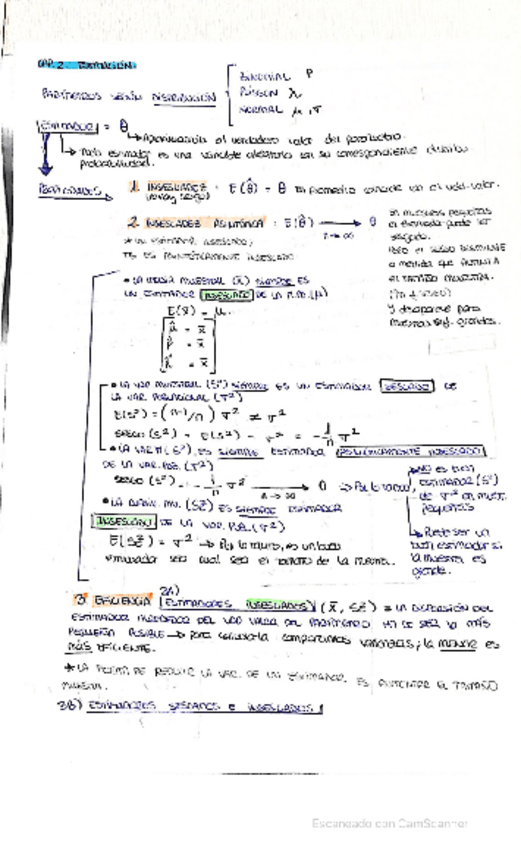 CAP. 2 ESTIMACIÓN
PARÁMETROS SEGÚN DISTRIBUCIÓN
BINOMIAL P
POISSON λ
NORMAL μ, σ
ESTIMADOR = θ̂
Aproximación al verdadero valor del parámetro.
Todo estimador es una variable aleatoria con su correspondiente
probabilidad.
PROPIEDADES
1. INSESGADEZ : E(θ̂) = θ En promedio coincide con el valor.
2. INSESGADEZ ASINTÓTICA : E(θ̂) → θ
n → ∞
* UN ESTIMADOR INSESGADO,
ES ASINTÓTICAMENTE INSESGADO
En muestras pequeñas
el estimador puede ser
sesgado.
Pero el sesgo disminuye
a medida que aumenta
el tamaño muestra.
Y desaparece para
muestras suf. grandes.
• LA MEDIA MUESTRAL (x̄) SIEMPRE ES
UN ESTIMADOR INSESGADO DE LA M.PO.(μ)
E(x̄) = μ
μ̂ = x̄
p̂ = x̄
λ̂ = x̄
• LA VAR MUESTRAL (S²) SIEMPRE ES UN ESTIMADOR SESGADO DE
LA VAR POBLACIONAL (σ²)
E(S²) = (n-1/n) σ² ≠ σ²
SESGO (S²) = E(S²) - σ² = - 1/n σ²
• LA VAR M (S²) ES SIEMPRE ESTIMADOR ASINTÓTICAMENTE INSESGADO
DE LA VAR. POB. (σ²)
SESGO (S²) = - 1/n σ² → 0 ⇒ Por lo tanto,
n → ∞
NO es buen
estimador (S²)
de σ² en muest.
pequeñas
Puede ser un
buen estimador si
la muestra es
grande.
• LA CUASIV. MU. (SC²) ES SIEMPRE ESTIMADOR
INSESGADO DE LA VAR. POB. (σ²)
E(SC²) = σ² → Por lo tanto, es un buen
estimador sea cual sea el tamaño de la muestra.
3A)
3. EFICIENCIA (ESTIMADORES INSESGADOS) (x̄, SC²) = LA DISPERSIÓN DEL
ESTIMADOR ALREDEDOR DEL VDO VALOR DEL PARÁMETRO HA DE SER LO MÁS
PEQUEÑA POSIBLE → para calcularla comparamos varianzas, la MENOR es
MÁS EFICIENTE.
* LA FORMA DE REDUCIR LA VAR. DE UN ESTIMADOR ES AUMENTAR EL TAMAÑO
MUESTRA.
3B) ESTIMADORES SESGADOS E INSESGADOS
Escaneado con CamScanner